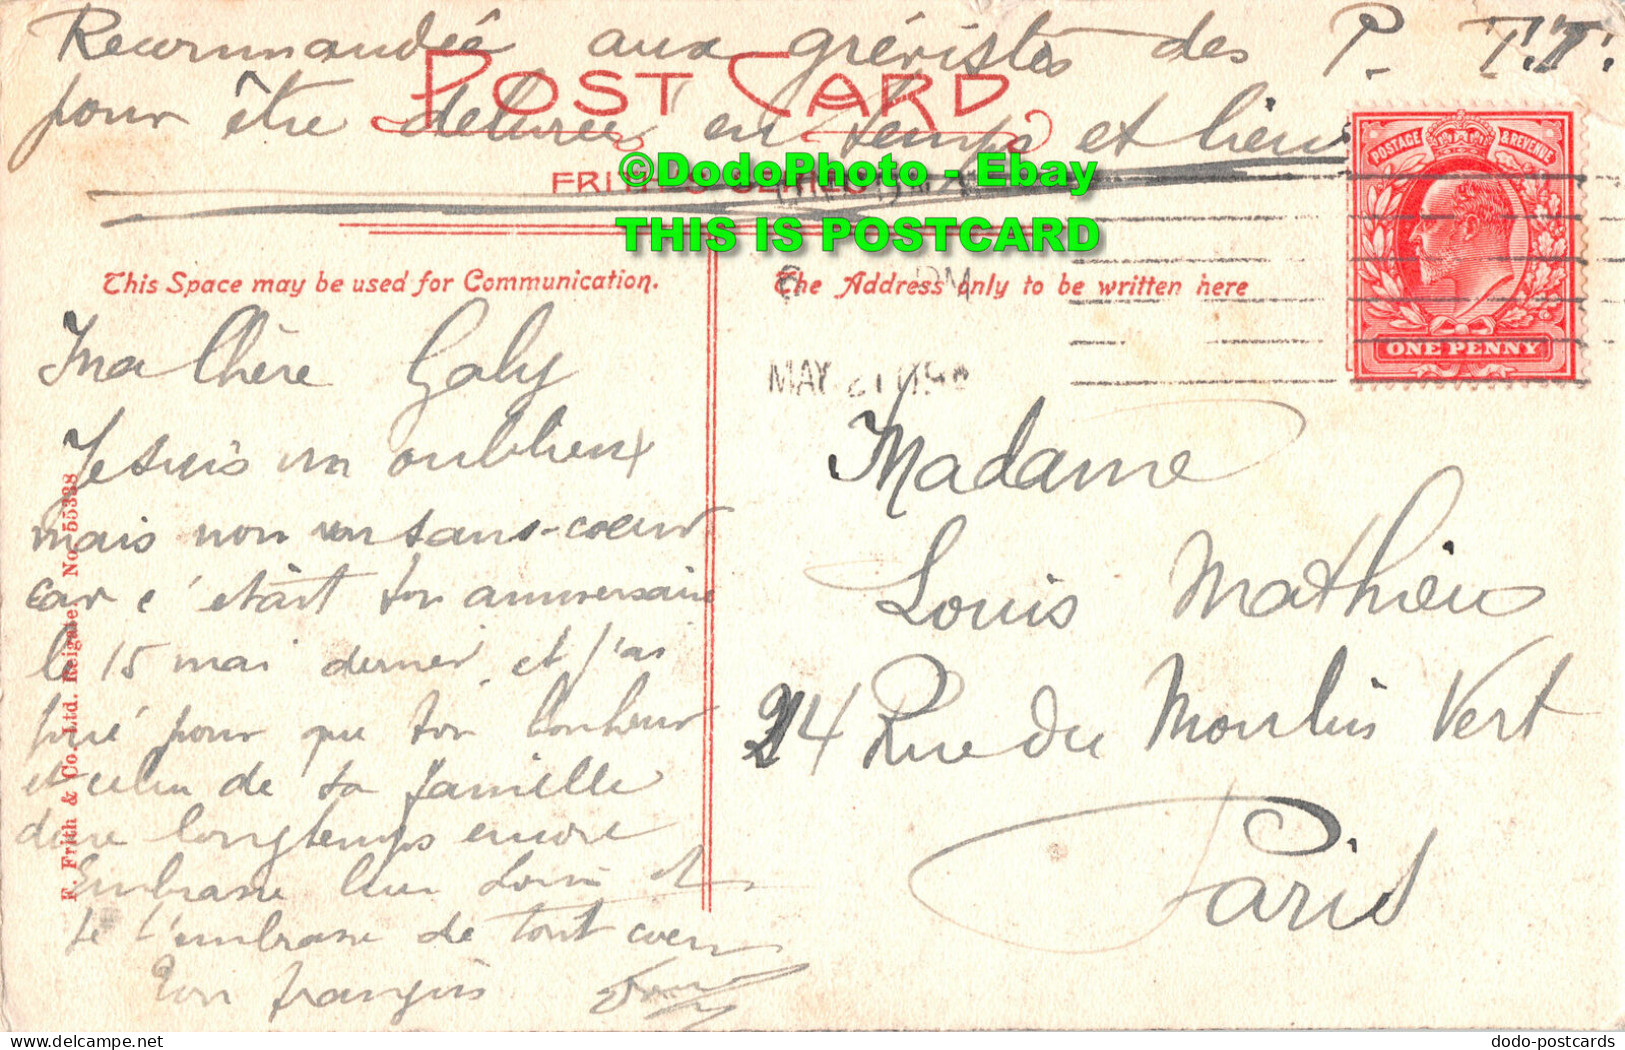 Recommandée aux grévistes des P. T.T.
pour être delivrées en temps et lieu
POST CARD
FRITH'S
©DodoPhoto - Ebay
THIS IS POSTCARD
POSTAGE & REVENUE
ONE PENNY
This Space may be used for Communication.
The Address only to be written here
PM
MAY 21
Ma Chère Gaby
Je suis un oublieux
mais non un sans-coeur
car c'était ton anniversaire
le 15 mai dernier et j'ai
prié pour que ton bonheur
et celui de ta famille
dure longtemps encore
Embrasse bien Louis et
je t'embrasse de tout coeur
Ton françois
F. Frith & Co. Ltd. Reigate. No. 55388
Madame
Louis Mathieu
24 Rue du Moulin Vert
Paris
dodo-postcards